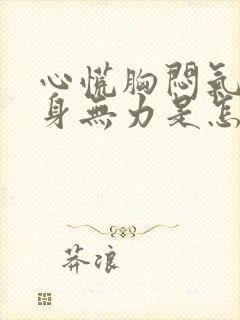 心慌胸悶氣
身無力是怎
莽浪